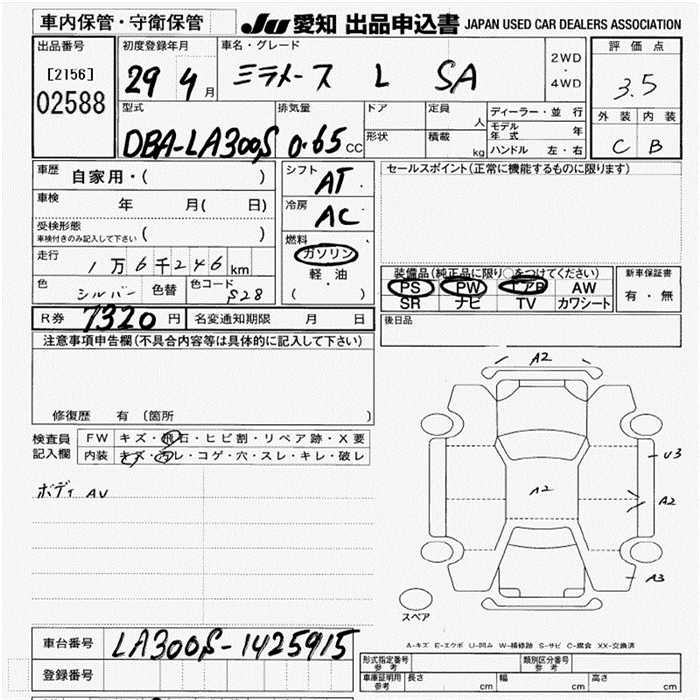 車内保管・守衛保管 JU 愛知 出品申込書 JAPAN USED CAR DEALERS ASSOCIATION
出品番号 [2156] 02588
初度登録年月 29 4月
車名・グレード ミライース L SA
2WD・4WD
評価点 3.5
外装 内装
C B
型式 DBA-LA300S
排気量 0.65 CC
ドア 定員 人
形状 積載 kg
ディーラー・並行
モデル年式 年
ハンドル 左・右
車歴 自家用・( )
車検 年 月( 日)
受検形態
車検付きのみ記入して下さい ( )
走行 1万6千246km
色 シルバー 色替 色コード S28
シフト AT
冷房 AC
燃料 ガソリン
軽・油
( )
セールスポイント(正常に機能するものに限ります)
装備品(純正品に限り○をつけてください)
PS PW エアB AW
SR ナビ TV カワシート
新車保証書
有・無
後日品
R券 7320円 名変通知期限 月 日
注意事項申告欄(不具合内容等は具体的に記入して下さい)
修復歴 有 〔箇所 〕
検査員記入欄
FW キズ・飛石・ヒビ割・リペア跡・X要
内装 キズ・汚レ・コゲ・穴・スレ・キレ・破レ
ボディ AU
A2
U3
A2
A2
A3
スペア
A-キズ E-エクボ U-凹み W-補修跡 S-サビ C-腐食 XX-交換済
車台番号 LA300S-1425915
登録番号
形式指定番号 参考
類別区分番号 参考
車庫証明用 参考 長さ cm 幅 cm 高さ cm